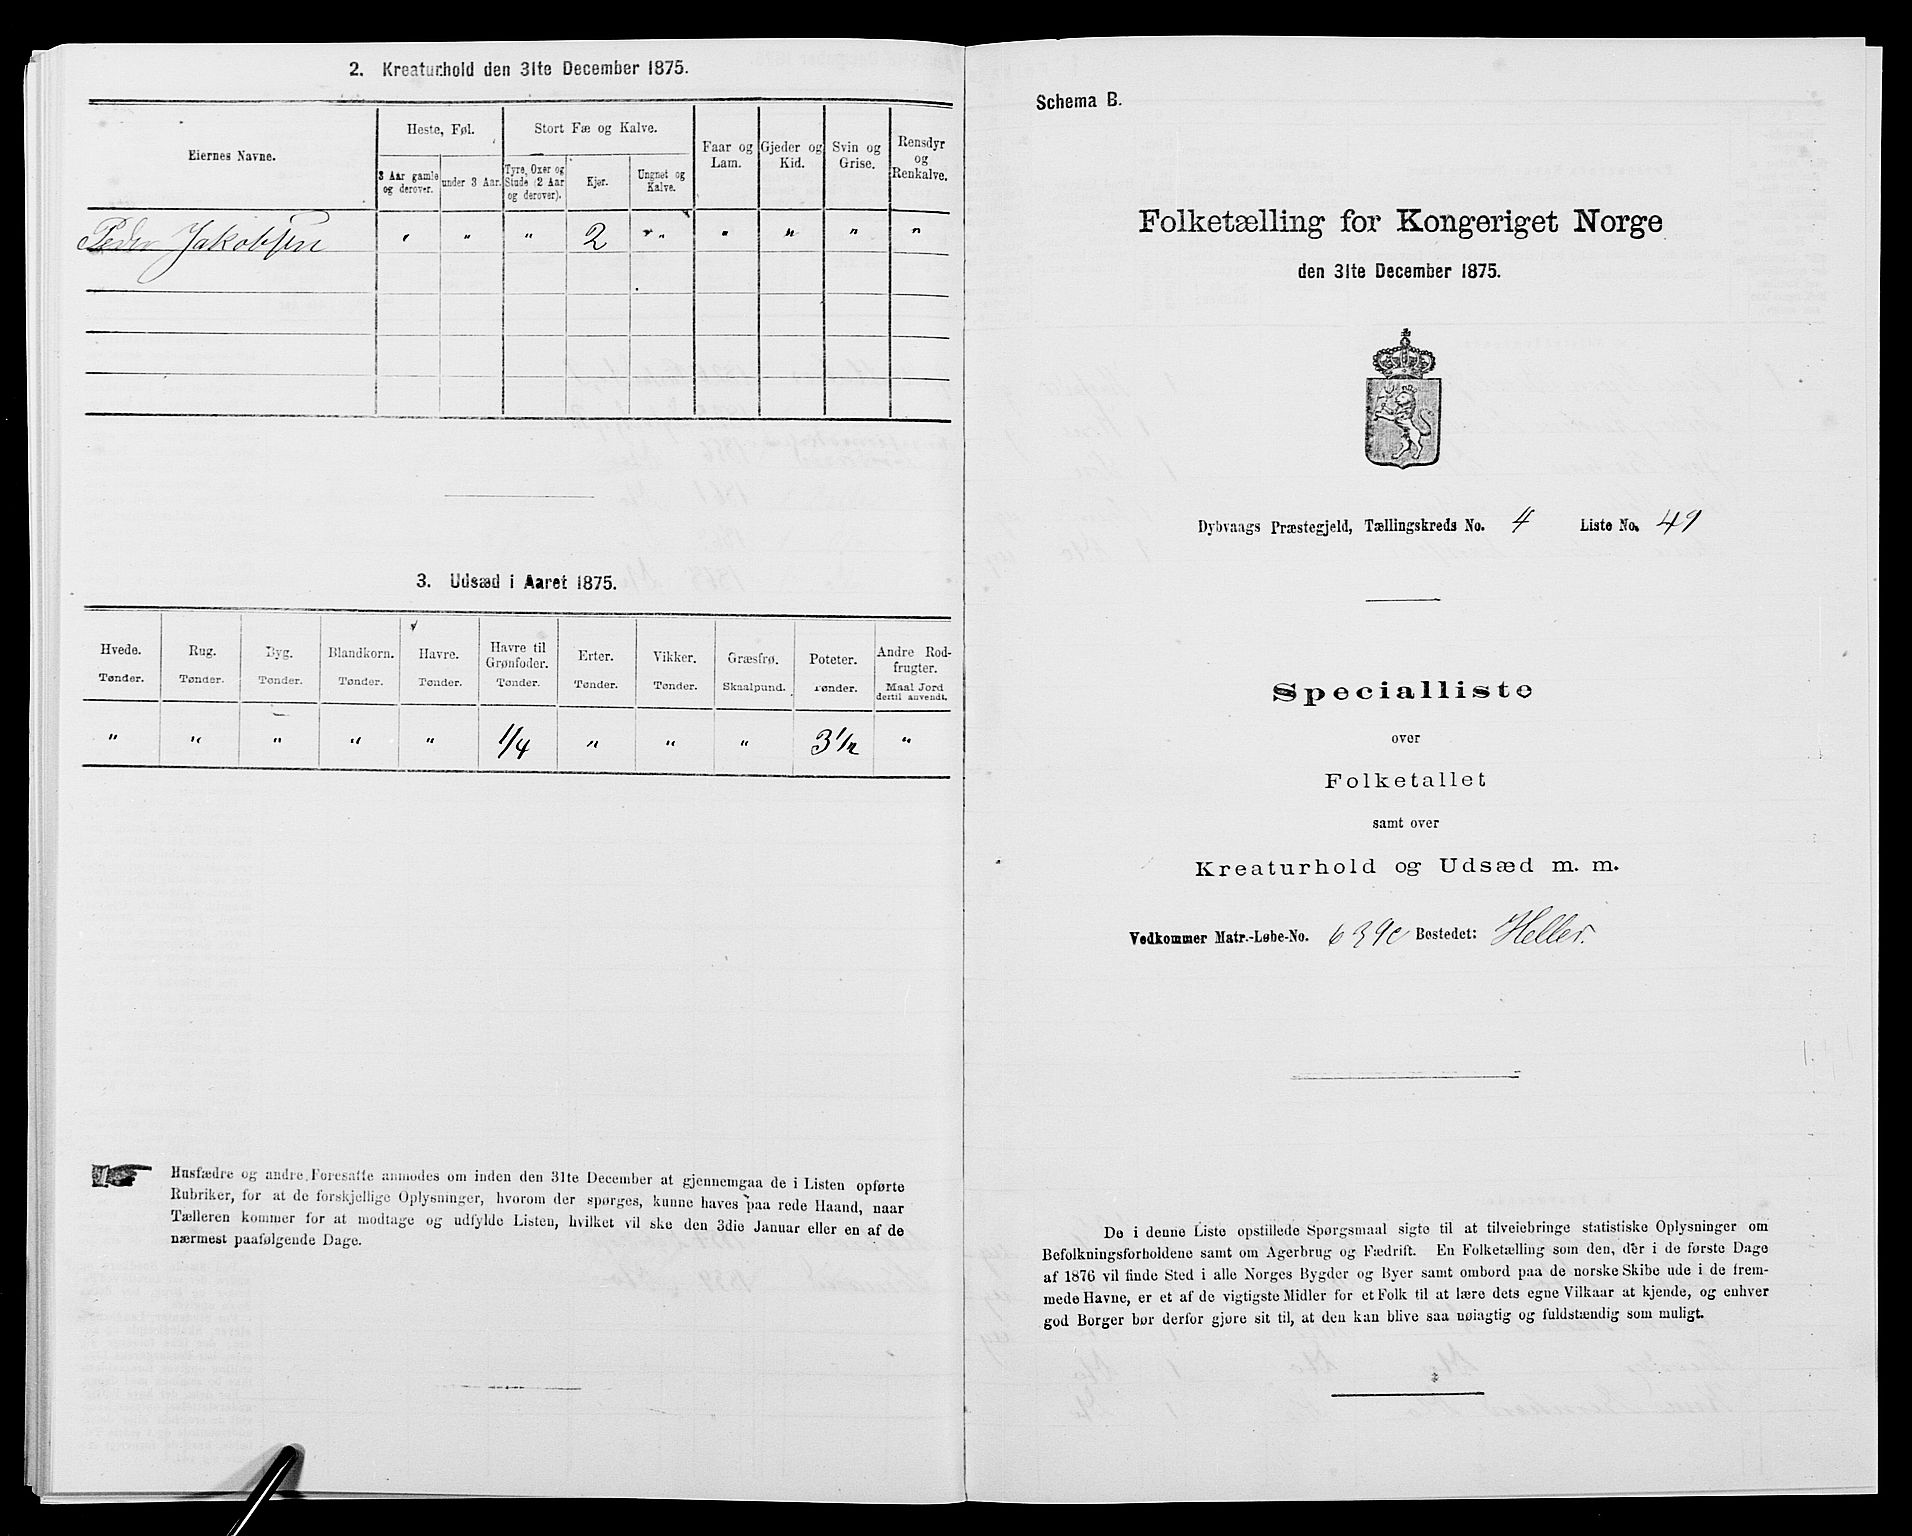 2. Kreaturhold den 31te December 1875.
Eiernes Navne.
Heste, Føl.
3 Aar gamle og derover.
under 3 Aar.
Stort Fæ og Kalve.
Tyre, Oxer og Stude (2 Aar og derover).
Kjør.
Ungnet og Kalve.
Faar og Lam.
Gjeder og Kid.
Svin og Grise.
Rensdyr og Renkalve.
Peder Jakobsen " " " 2 " " " " "
3. Udsæd i Aaret 1875.
Hvede. Rug. Byg. Blandkorn. Havre. Havre til Grønfoder. Erter. Vikker. Græsfrø. Poteter. Andre Rodfrugter.
Tønder. Tønder. Tønder. Tønder. Tønder. Tønder. Tønder. Tønder. Skaalpund. Tønder. Maal Jord dertil anvendt.
" " " " " 1/4 " " " 3 1/2 "
Husfædre og andre Foresatte anmodes om inden den 31te December at gjennemgaa de i Listen opførte
Rubriker, for at de forskjellige Oplysninger, hvorom der spørges, kunne haves paa rede Haand, naar
Tælleren kommer for at modtage og udfylde Listen, hvilket vil ske den 3die Januar eller en af de
nærmest paafølgende Dage.
Schema B.
Folketælling for Kongeriget Norge
den 31te December 1875.
Dybvaags Præstegjeld, Tællingskreds No. 4 Liste No. 49
Specialliste
over
Folketallet
samt over
Kreaturhold og Udsæd m. m.
Vedkommer Matr.-Løbe-No. 639c Bostedet: Heller.
De i denne Liste opstillede Spørgsmaal sigte til at tilveiebringe statistiske Oplysninger om
Befolkningsforholdene samt om Agerbrug og Fædrift. En Folketælling som den, der i de første Dage
af 1876 vil finde Sted i alle Norges Bygder og Byer samt ombord paa de norske Skibe ude i de frem-
mede Havne, er et af de vigtigste Midler for et Folk til at lære dets egne Vilkaar at kjende, og enhver
god Borger bør derfor gjøre sit til, at den kan blive saa nøiagtig og fuldstændig som muligt.